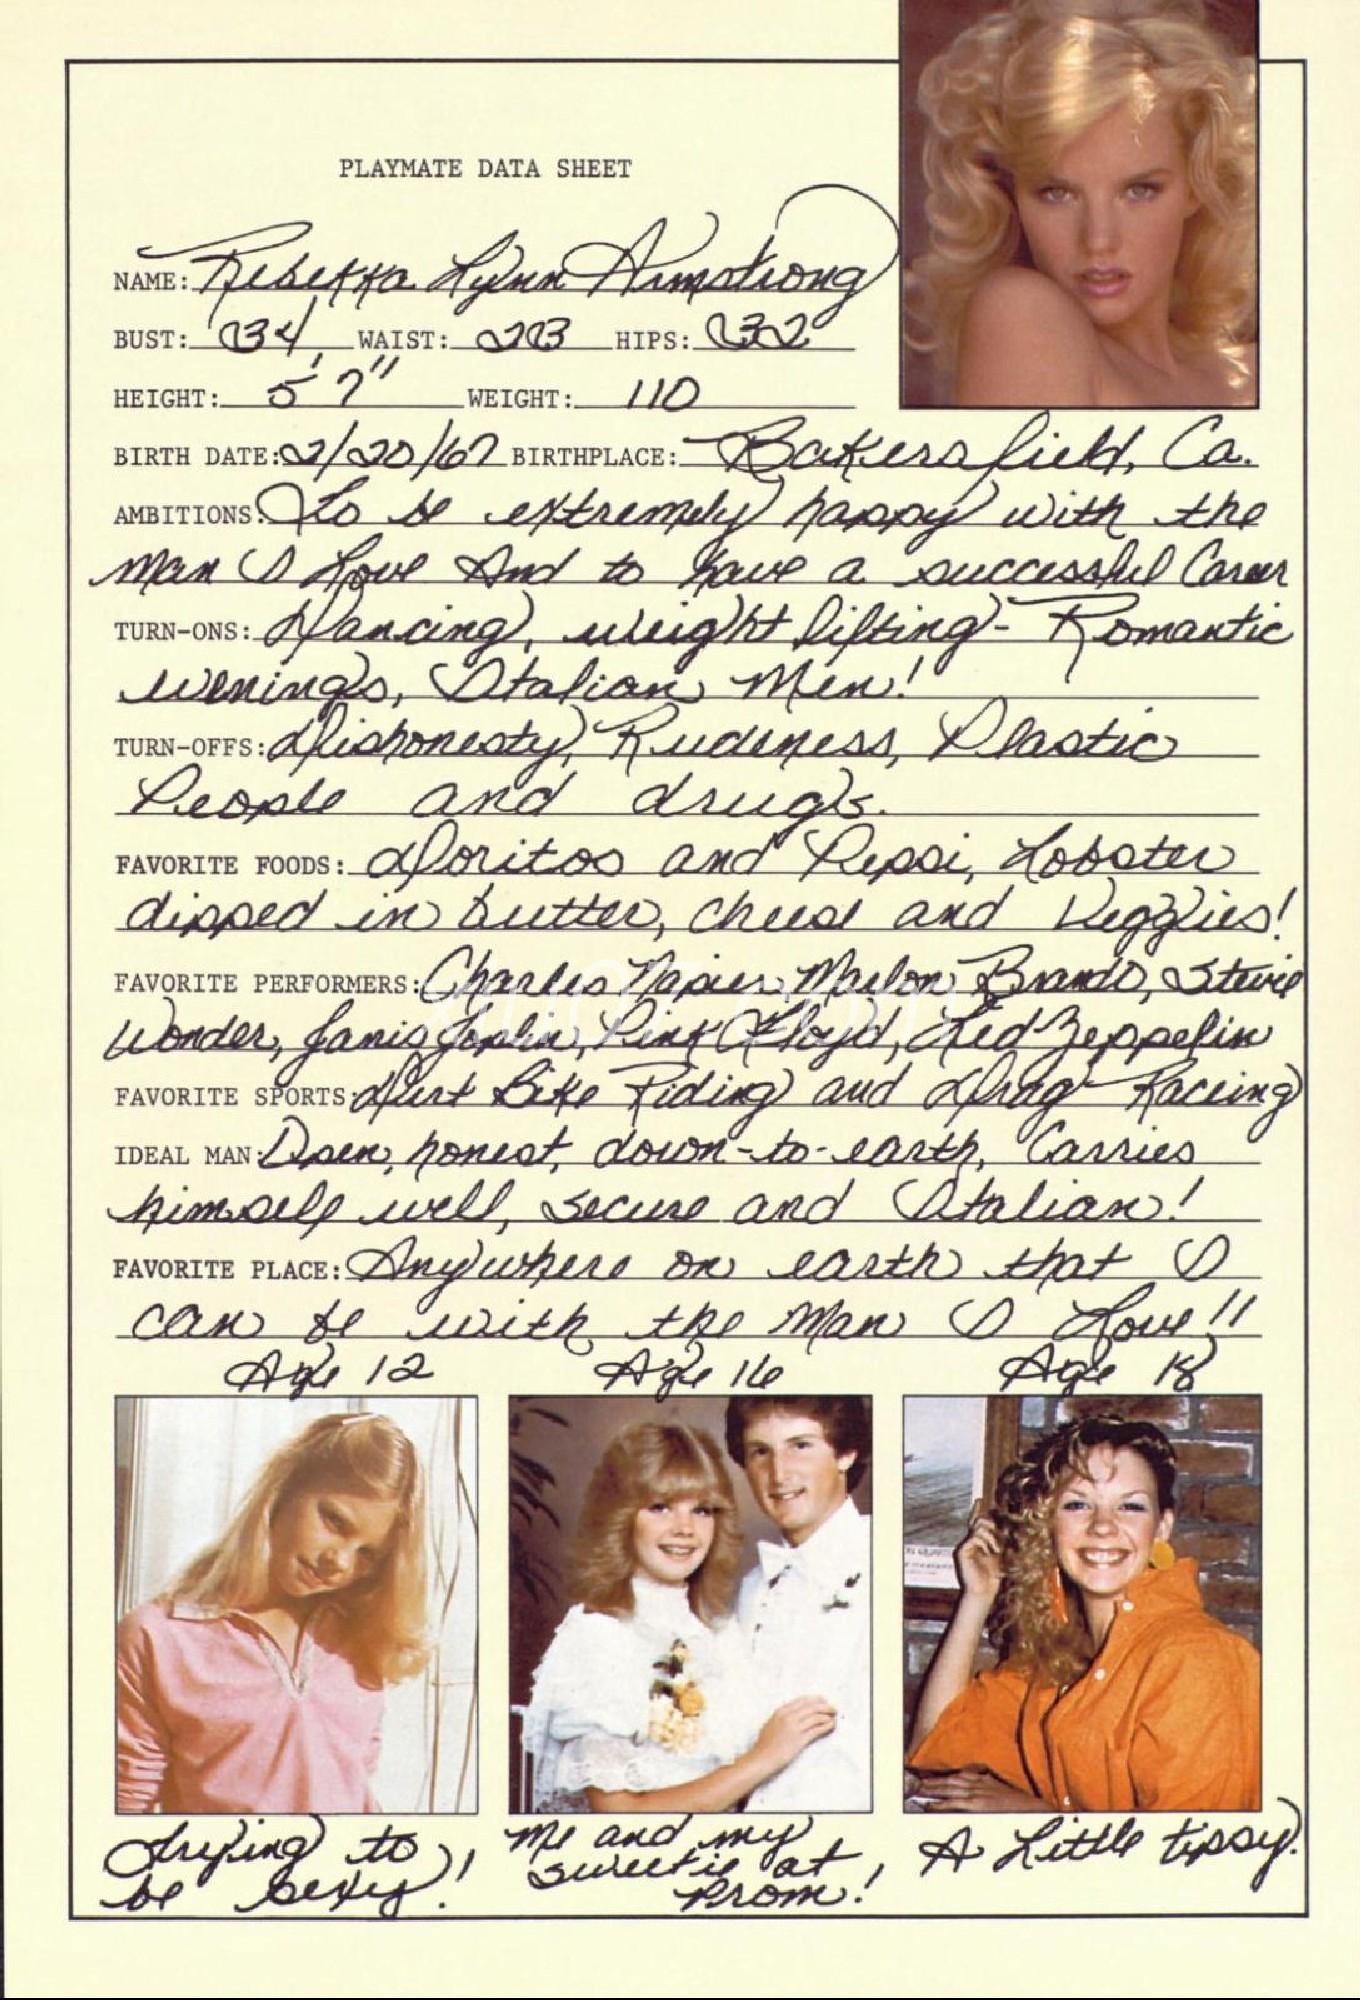 PLAYMATE DATA SHEET
NAME: Rebekka Lynn Armstrong
BUST: 34 WAIST: 23 HIPS: 32
HEIGHT: 5'7" WEIGHT: 110
BIRTH DATE: 2/20/67 BIRTHPLACE: Bakersfield, Ca.
AMBITIONS: To be extremely happy with the
man I Love And to have a successful Career
TURN-ONS: Dancing, weight lifting- Romantic
evenings, Italian Men!
TURN-OFFS: Dishonesty, Rudeness, Plastic
People and drugs.
FAVORITE FOODS: Doritos and Pepsi, Lobster
dipped in butter, cheese and Veggies!
FAVORITE PERFORMERS: Charles Napier, Marlon Brando, Stevie
Wonder, Janis Joplin, Pink Floyd, Led Zeppelin
FAVORITE SPORTS: Dirt Bike Riding and Drag Raceing
IDEAL MAN: Open, honest, down-to-earth, Carries
himself well, secure and Italian!
FAVORITE PLACE: Anywhere on earth that I
can be with the Man I Love!!
Age 12 Age 16 Age 18
Trying to
be Sexy!
Me and my
sweetie at
Prom!
A Little tipsy!